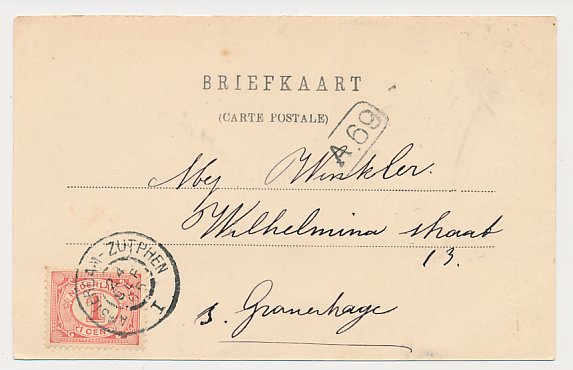 BRIEFKAART
(CARTE POSTALE)
A.69
Mej Winkler.
Wilhelmina straat
13.
s. Gravenhage
AMSTERDAM-ZUTPHEN
I
NEDERLAND
1
CENT